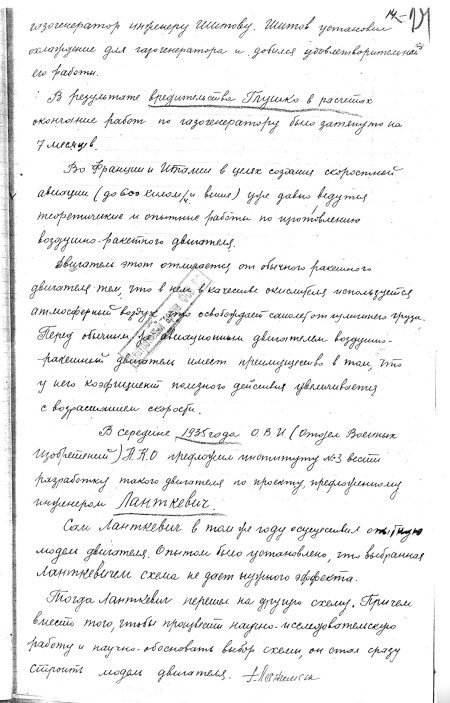 14.
газогенератор инженеру Шитову. Шитов установил
охлаждение для газогенератора и добился удовлетворительной
его работы.
В результате вредительства Глушко в расчетах
окончание работ по газогенератору было затянуто на
7 месяцев.
Во Франции и Италии в целях создания скоростной
авиации (до 600 килом/ч и выше) уже давно ведутся
теоретические и опытные работы по изготовлению
воздушно-ракетного двигателя.
Двигатель этот отличается от обычного ракетного
двигателя тем, что в нем в качестве окислителя используется
атмосферный воздух, что освобождает самолет от лишнего груза.
Перед обычным авиационным двигателем воздушно-
ракетный двигатель имеет преимущество в том, что
у него коэфициент полезного действия увеличивается
с возрастанием скорости.
В середине 1935 года О.В.И (Отдел Военных
Изобретений) Н.К.О предложил институту №3 вести
разработку такого двигателя по проекту, предложенному
инженером Ланткевич.
Сам Ланткевич в том же году осуществил опытную
модель двигателя. Опытом было установлено, что выбранная
Ланткевичем схема не дает нужного эффекта.
Тогда Ланткевич перешел на другую схему. Причем
вместо того, чтобы произвести научно-исследовательскую
работу и научно-обосновать выбор схемы, он стал сразу
строить модель двигателя.